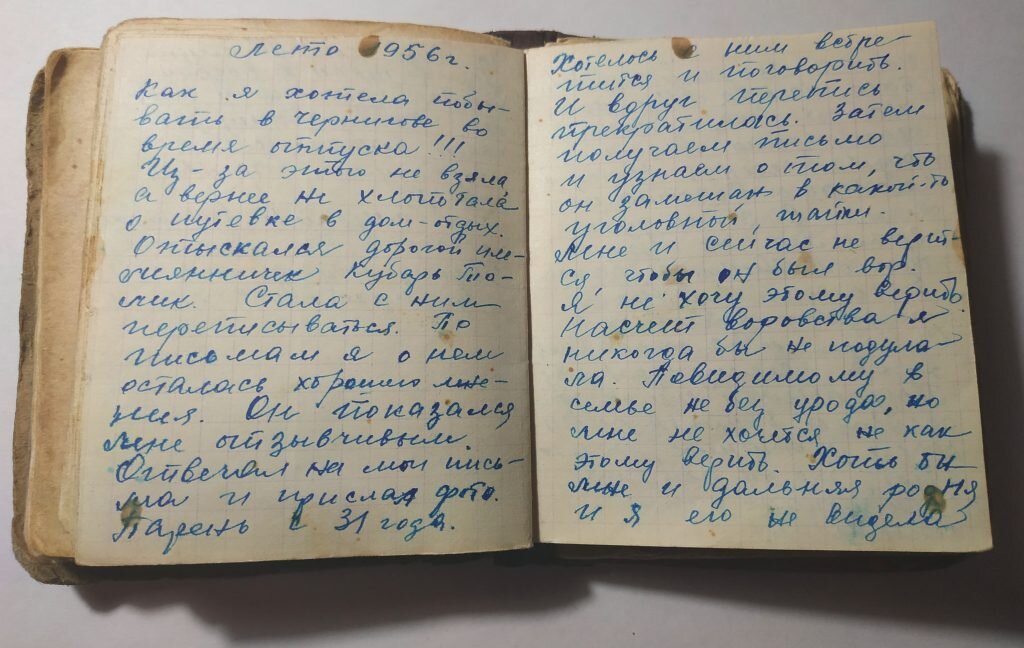 Лето 1956г.
Как я хотела побы-
вать в Чернигове во
время отпуска!!!
Из-за этого не взяла,
а вернее не хлопотала
о путевке в дом-отдых.
Отыскался дорогой пле-
мянничек Кубарь То-
лик. Стала с ним
переписываться. По
письмам я о нем
осталась хорошего мне-
ния. Он показался
мне отзывчивым.
Отвечал на мои пись-
ма и прислал фото.
Парень с 31 года.
Хотелось с ним встре-
тится и поговорить.
И вдруг перепись
прекратилась. Затем
получаем письмо
и узнаем о том, что
он замешан в какой-то
уголовной, шайки.
Мне и сейчас не верит-
ся, чтобы он был вор.
Я не хочу этому верить
Насчет воровства я
никогда бы не подума-
ла. Повидимому в
семье не без урода, но
мне не хочется не как
этому верить. Хоть бы
мне и дальняя родня
и я его не видела